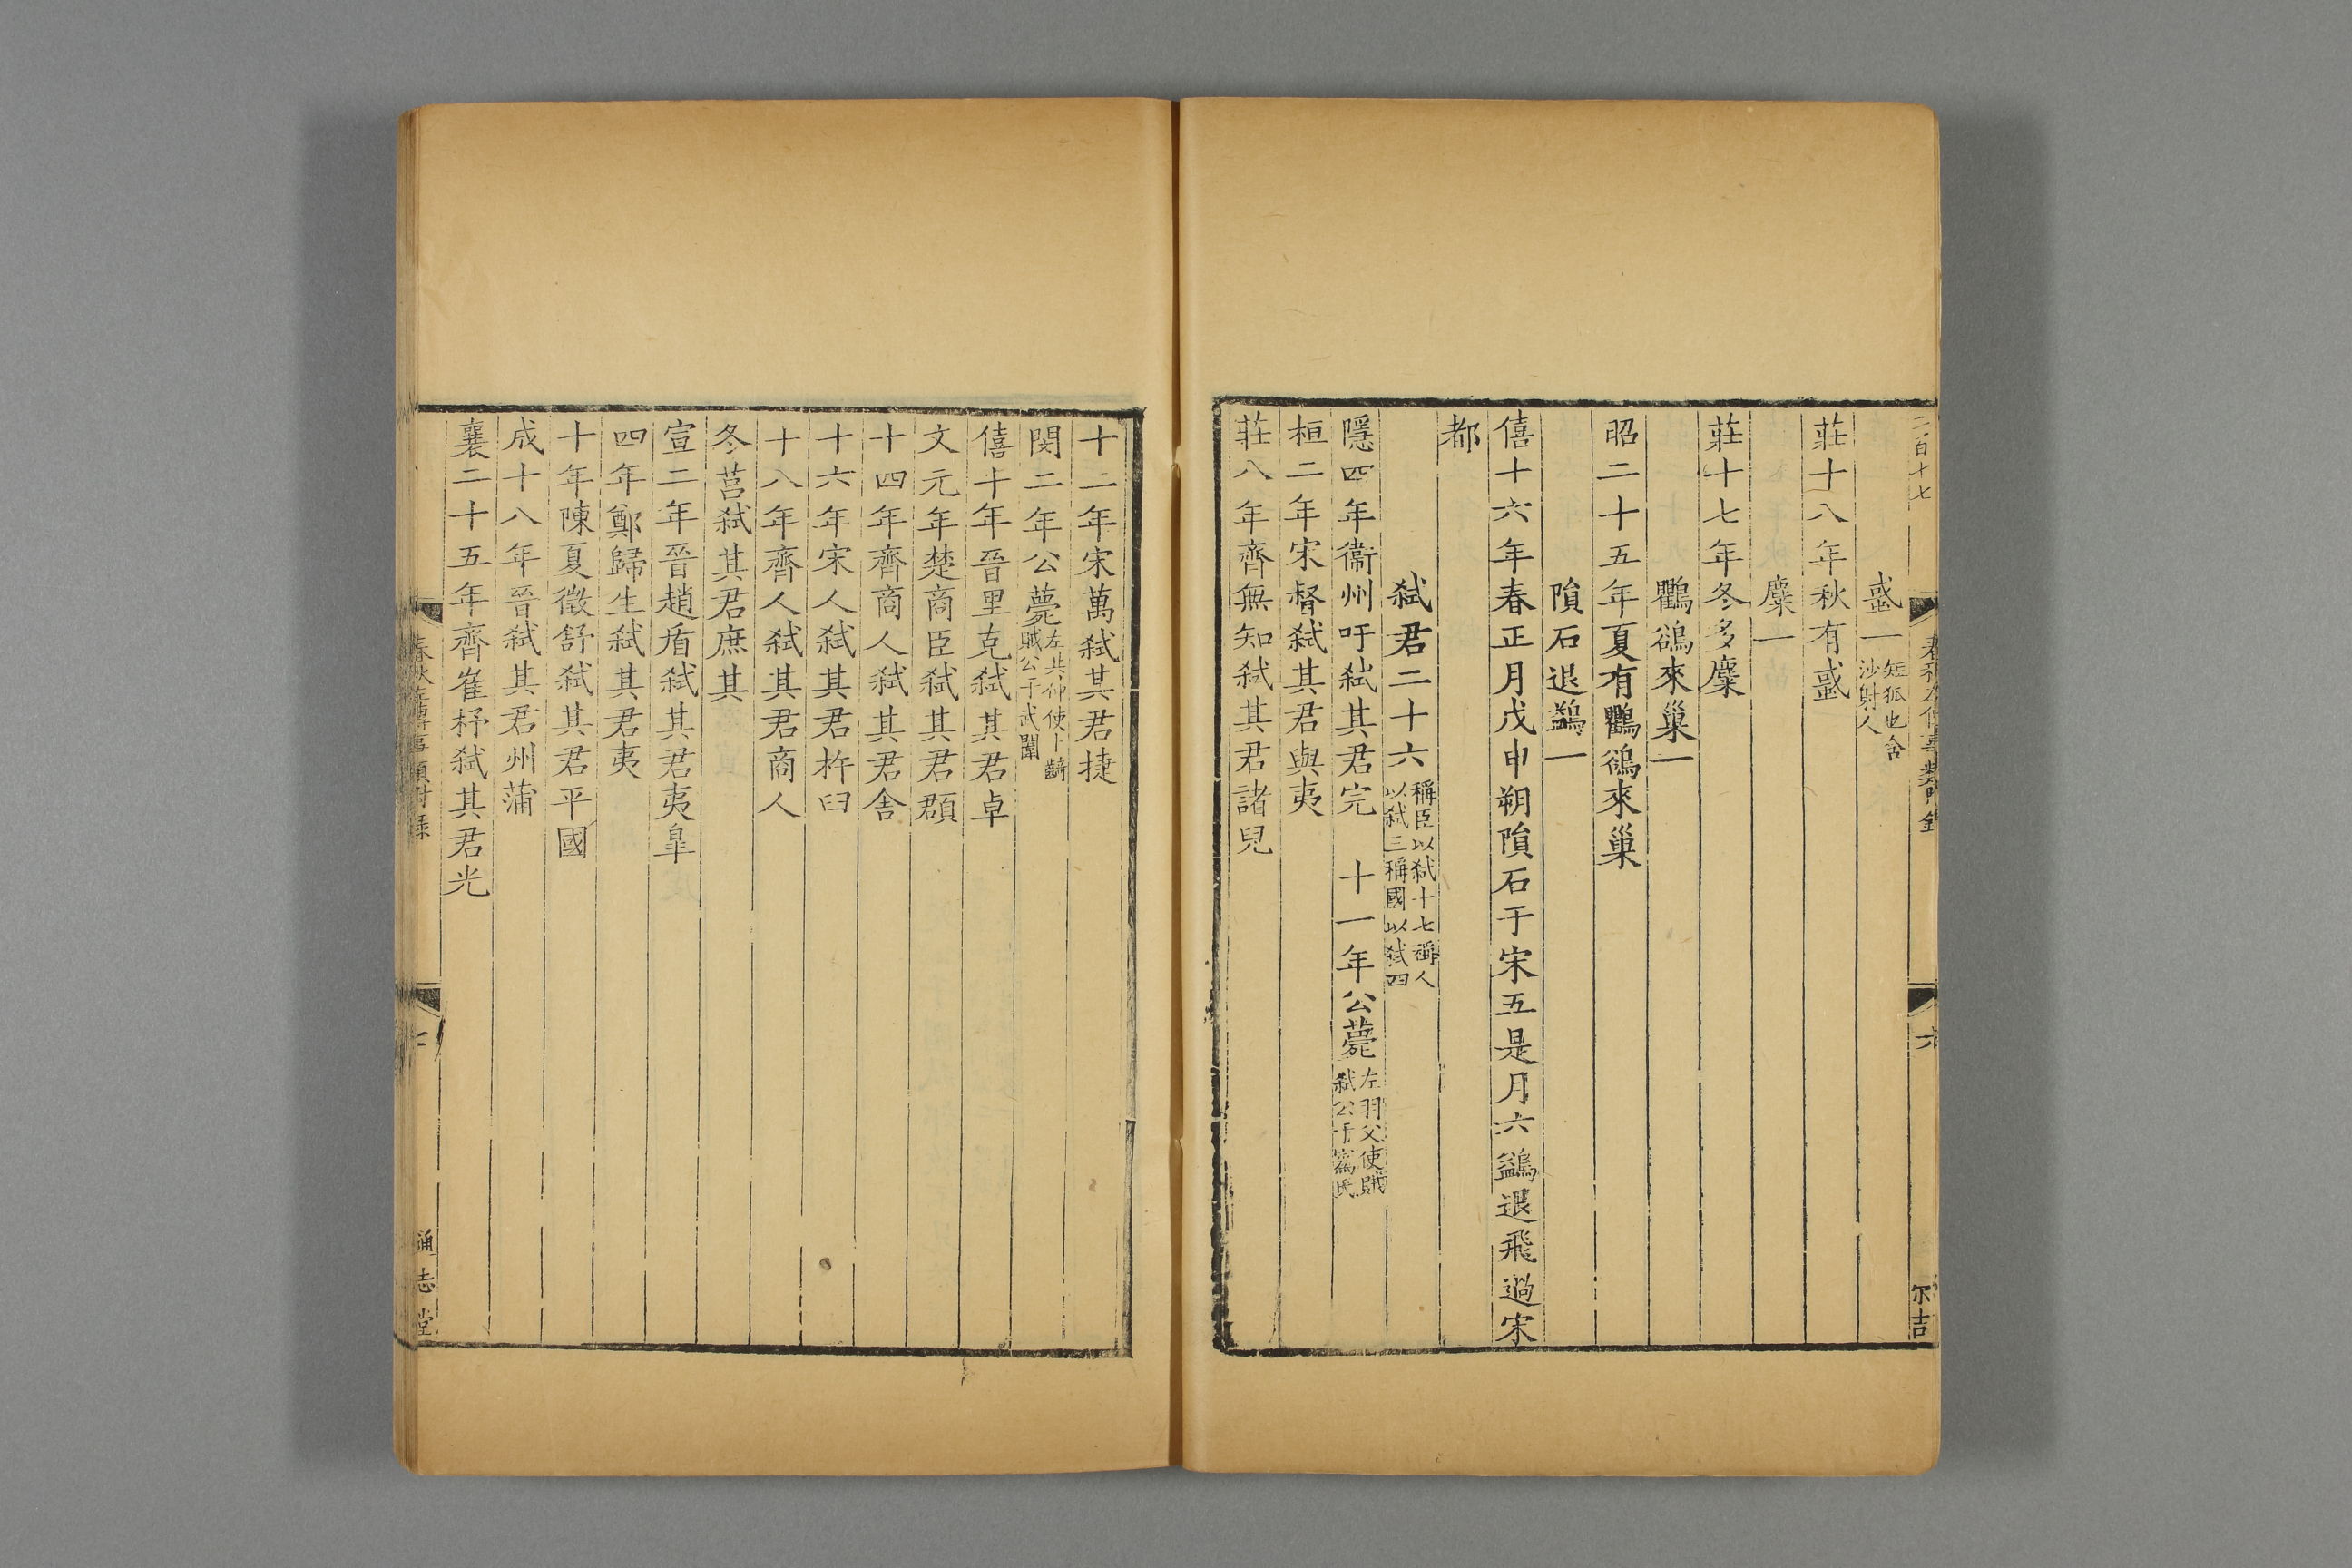 二百十七
春秋左傳事類附錄
六
尔吉
蜮一短狐也含沙射人
莊十八年秋有蜮
麋一
莊十七年冬多麋
鸜鵒來巢一
昭二十五年夏有鸜鵒來巢
隕石退鷁一
僖十六年春正月戊申朔隕石于宋五是月六鷁退飛過宋
都
弑君二十六稱臣以弑十七稱人以弑三稱國以弑四
隱四年衞州吁弑其君完 十一年公薨左羽父使賊弑公于寪氏
桓二年宋督弑其君與夷
莊八年齊無知弑其君諸兒
十二年宋萬弑其君捷
閔二年公薨左共仲使卜齮賊公于武闈
僖十年晉里克弑其君卓
文元年楚商臣弑其君頵
十四年齊商人弑其君舍
十六年宋人弑其君杵臼
十八年齊人弑其君商人
冬莒弑其君庶其
宣二年晉趙盾弑其君夷皐
四年鄭歸生弑其君夷
十年陳夏徵舒弑其君平國
成十八年晉弑其君州蒲
襄二十五年齊崔杼弑其君光
春秋左傳事類附錄
七
通志堂